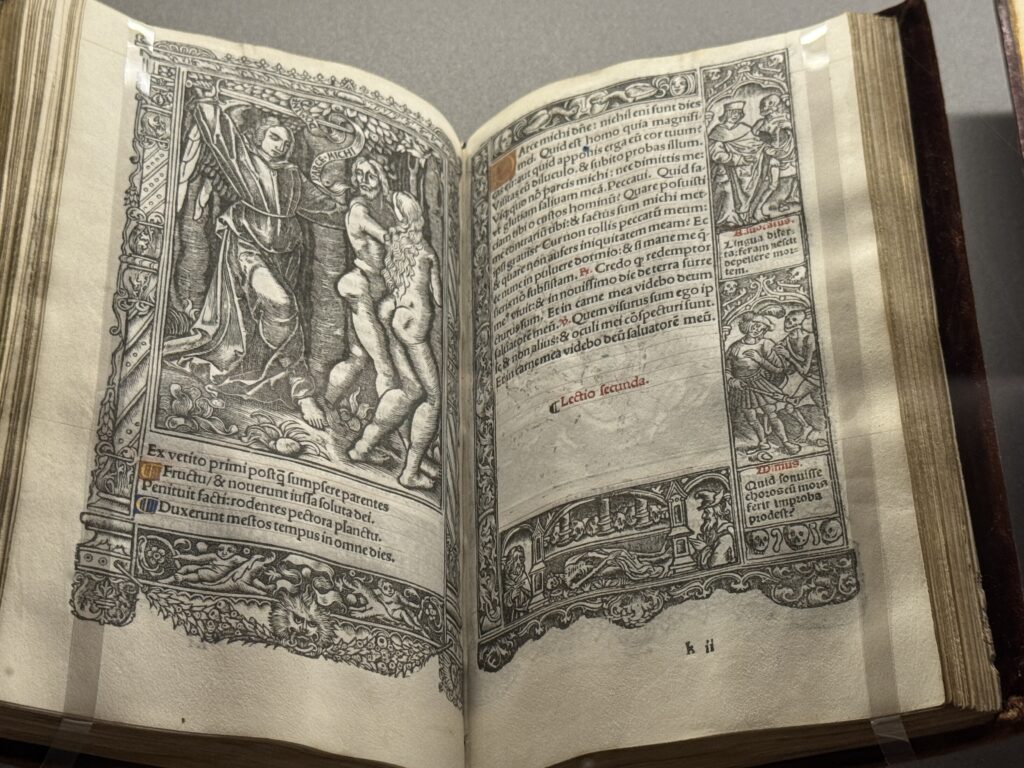 Ex vetito primi postq̃ sumpsere parentes
Fructu/ & nouerunt iussa soluta dei.
Penituit facti: rodentes pectora planctu.
Duxerunt mestos tempus in omne dies.
Arce michi dñe: nichil eni sunt dies
mei. Quid est homo quia magnifi-
cas eũ: aut quid apponis erga eũ cor tuum?
Visitas eũ diluculo, & subito probas illum.
Vsq; quo nõ parcis michi: nec dimittis me
vt glutiam saliuam meã. Peccaui. Quid fa-
ciam tibi o custos hominũ? Quare posuisti
me contrariũ tibi: & factus sum michi met
ipsi grauis? Cur non tollis peccatũ meum:
& quare non aufers iniquitatem meam? Ec
ce nunc in puluere dormio: & si mane me q̃
sieris nõ subsistam. Rs. Credo q redemptor
me⁹ viuit: & in nouissimo die de terra surre
cturus sum, Et in carne mea videbo deum
saluatorẽ meũ. V. Quem visurus sum ego ip
se & non alius: & oculi mei cõspecturi sunt.
Et in carne mea videbo deũ saluatorẽ meũ.
Lectio secunda.
Lingua diser-
ta: feram nescit
depellere mor-
tem.
Mimus.
Quid sonuisse
choros cũ mors
ferit improba
prodest?
k ii